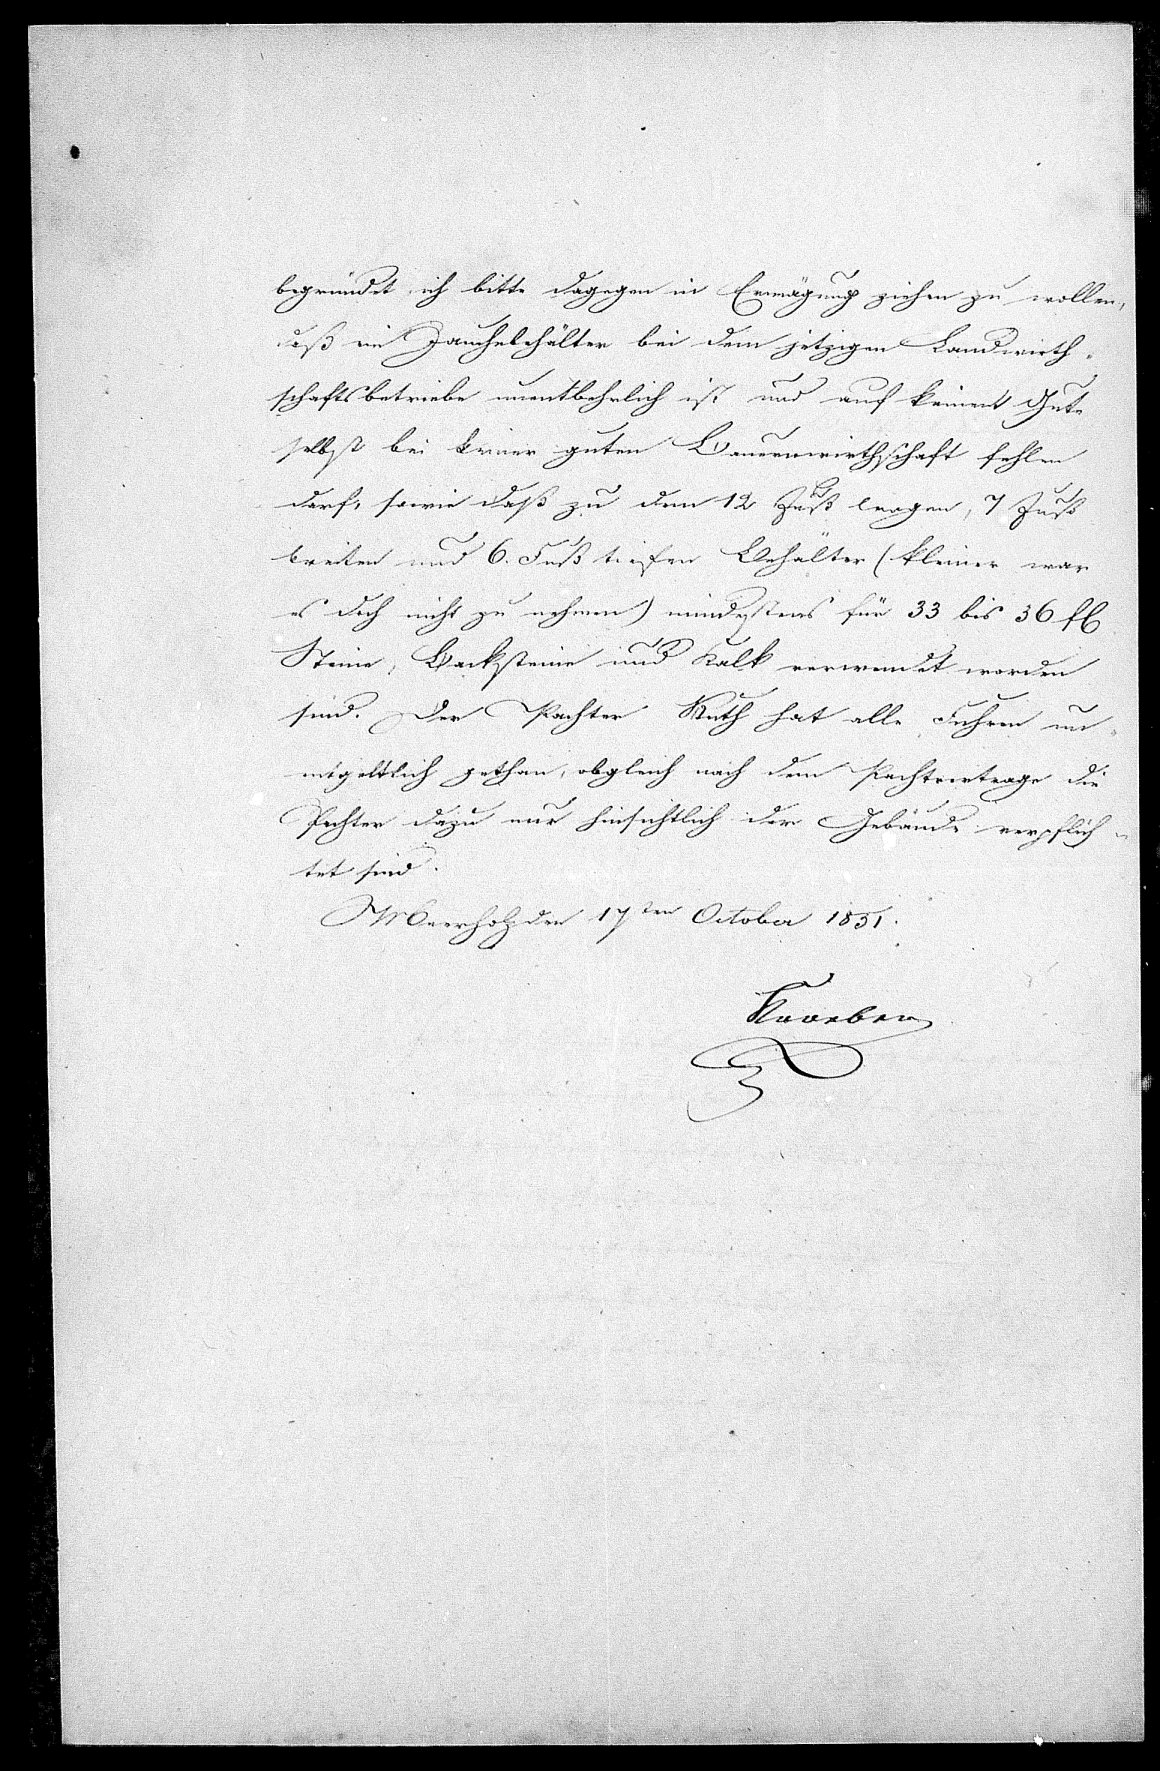 begründet ich bitte dagegen in Erwägung ziehen zu wollen,
daß ein Jauchebehälter bei dem jetzigen Landwirth-
schaftsbetriebe unentbehrlich ist und auf keinem Gute
selbst bei keiner guten Bauernwirthschaft fehlen
darf, sowie daß zu dem 12 Fuß langen, 7 Fuß
breiten und 6. Fuß tiefen Behälter (kleiner war
es doch nicht zu nehmen) mindestens für 33 bis 36 fl
Steine, Backsteine und Kalk verwendet worden
sind. Der Pachter Ruth hat alle Fuhren un-
entgeltlich gethan, obgleich nach dem Pachtvertrage die
Pachter dazu nur hinsichtlich der Gebäude verpflich-
tet sind.
Meerholz den 17ten October 1851.